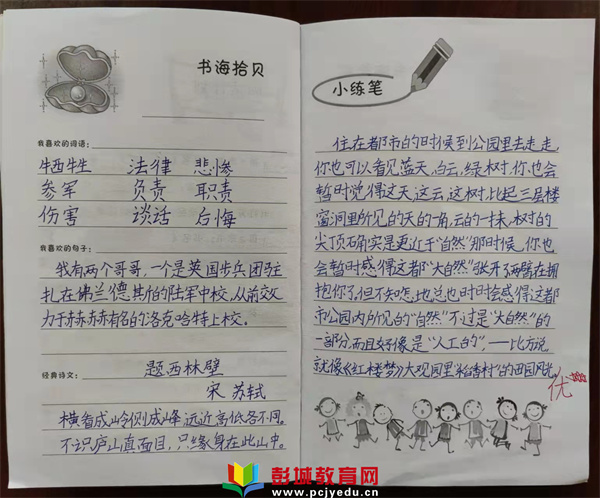 书海拾贝
我喜欢的词语:
牺牲 法律 悲惨
参军 负责 职责
伤害 谈话 后悔
我喜欢的句子:
我有两个哥哥,一个是英国步兵团驻
扎在佛兰德斯的陆军中校,从前效
力于赫赫有名的洛克哈特上校。
经典诗文:
题西林壁
宋 苏轼
横看成岭侧成峰 远近高低各不同。
不识庐山真面目,只缘身在此山中。
小练笔
住在都市的时候到公园里去走走
你也可以看见蓝天,白云,绿树,你也会
暂时觉得这天,这云,这树,比起三层楼
窗洞里所见的天的一角,云的一抹,树的
尖顶确实是更近于"自然"那时候,你也
会暂时感得这都"大自然"张开了两臂在拥
抱你了,但不知怎地总也时时会感得这都
市公园内所见的"自然"不过是"大自然"的
一部分,而且好像是"人工的",——比方说
就像《红楼梦》大观园里"稻香村"的田园风光
优
彭城教育网
www.pcjyedu.cn